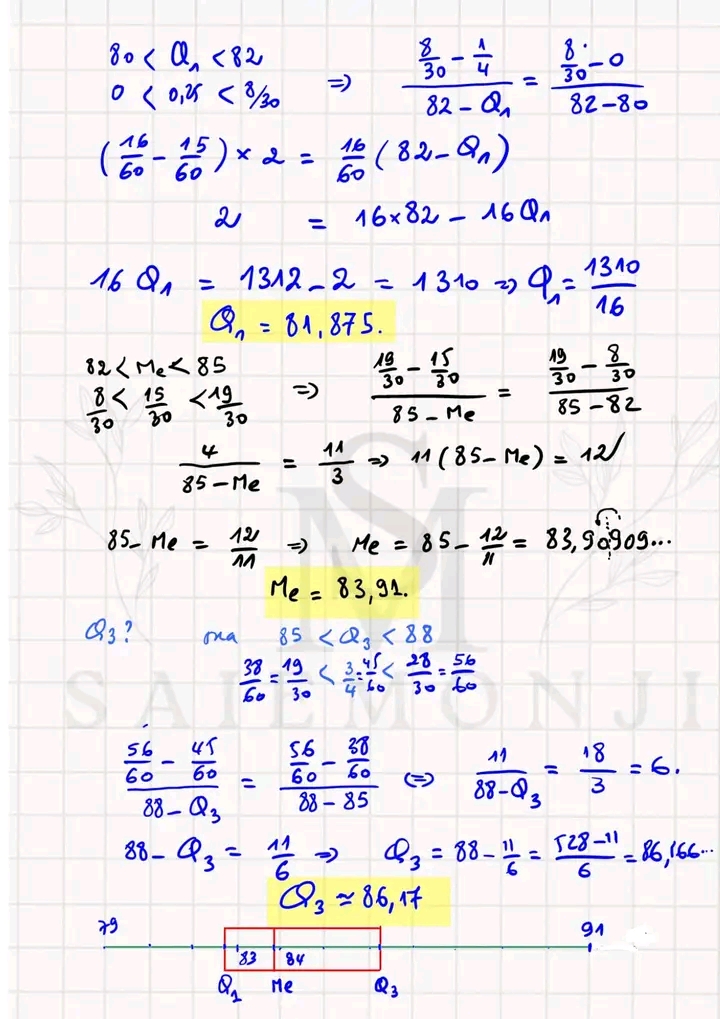 80 < Q₁ < 82
0 < 0,25 < 8/30 ⇒ (8/30 - 1/4)/(82 - Q₁) = (8/30 - 0)/(82 - 80)
(16/60 - 15/60) × 2 = 16/60 (82 - Q₁)
2 = 16×82 - 16Q₁
16 Q₁ = 1312 - 2 = 1310 ⇒ Q₁ = 1310/16
Q₁ = 81,875.
82 < Me < 85
8/30 < 15/30 < 19/30 ⇒ (19/30 - 15/30)/(85 - Me) = (19/30 - 8/30)/(85 - 82)
4/(85 - Me) = 11/3 ⇒ 11(85 - Me) = 12
85 - Me = 12/11 ⇒ Me = 85 - 12/11 = 83,90909...
Me = 83,91.
Q₃? 85 < Q₃ < 88
38/60 = 19/30 < 3/4 = 45/60 < 28/30 = 56/60
SAILMONJI
(56/60 - 45/60)/(88 - Q₃) = (56/60 - 38/60)/(88 - 85) ⇔ 11/(88 - Q₃) = 18/3 = 6.
88 - Q₃ = 11/6 ⇒ Q₃ = 88 - 11/6 = (528 - 11)/6 = 86,166...
Q₃ ≃ 86,17
79 91
83 84
Q₁ Me Q₃